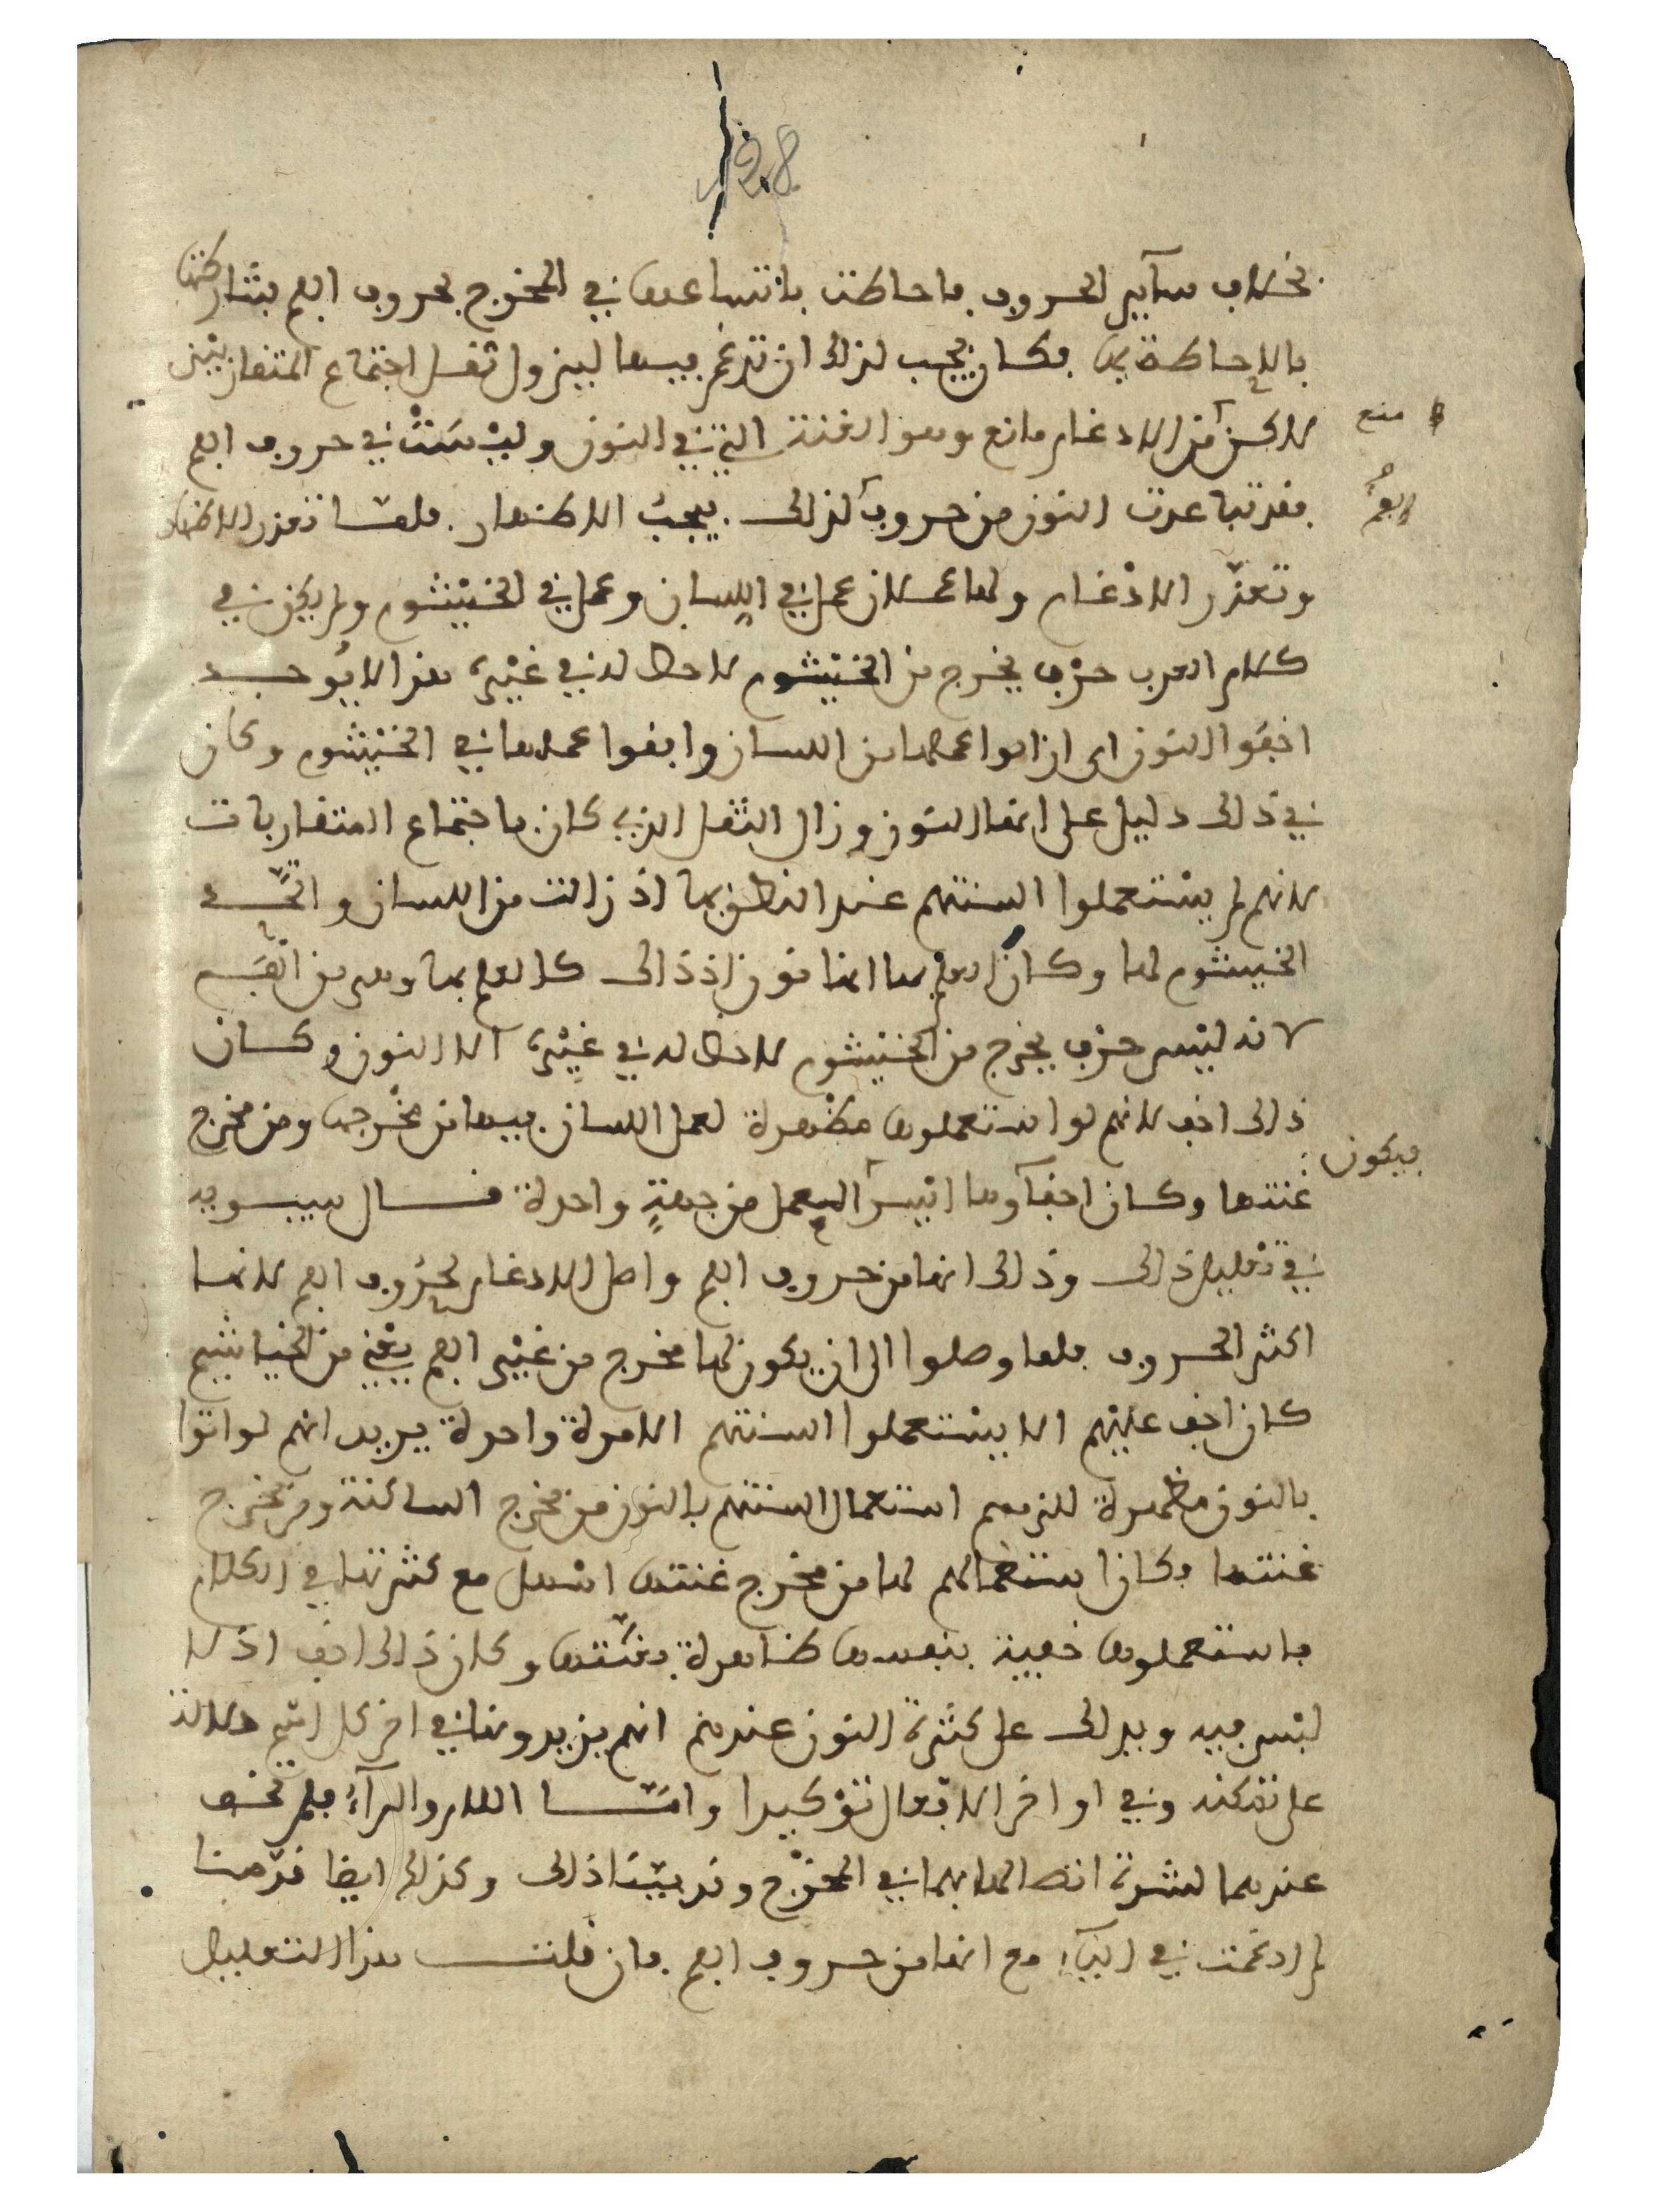 128
بخلاف سآير الحروف فاحاطت باتساعها في المخرج بحروف الفم فشاركتها
بالإحاطة بها فكان يجب لذلك ان تدغم فيها ليزول ثقل اجتماع المتقاربين
لاكن من الادغام مانع وهو الغنة التي في النون وليْسَتْ في حروف الفم
منع
فقد تباعدت النون من حروف لذلك يجبُ الاظهار فلمّا تعذر الاظهار
الفمُ
وتعذّر الادْغام ولها عملان عمل في اللسان وعمل في الخيْشوم ولم يكن في
كلام العرب حرْف يخرج من الخيْشوم لاحظ له في غيْره هذا لا يُوجد
اخفوا النون اي ازالوا عملها من اللسان وابقوا عملها في الخيْشوم وكان
في ذالك دليل على انها النون وزال الثقل الذي كان باجتماع المتقاربات
لانهم لم يسْتعملوا السنتهم عند النطق بها اذ زالت من اللسان والتَّي
الخيشوم لها وكان العلم بها انها نون اذ ذالك كالعلم بها وهي من الفَم
لانه ليْس حرْف يخرج من الخيْشوم لاحظ له في غيْره الا النون وكان
ذالك اخف لانهم لو استعملوها مظهرة لعمل اللسان فيها من مخْرجها ومن مخرج
غنتها وكان اخفآوها ايْسر العمل من جهةٍ واحدة قال سيبويه
فيكون
في تعْليل ذالك وذالك انها من حروف الفم واصل الادغام لحرُوف الفم لانها
اكثر الحروف فلما وصلوا الى ان يكون لها مخرج من غيْر الفم يعْني من الخياشيم
كان اخف عليْهم الا يسْتعملوا السنتهم الا مرة واحدة يريد انهم لو اتوا
بالنون مظهرة للزمهم استعمال السنتهم بالنون من مخرج الساكنة ومن مخرج
غنتها فكان استعمالهم لها من مخرج غنتها اسْهل مع كثرتها في الكلام
فاستعملوها خفية بنفسها ظاهرة بغنّتها وكان ذالك اخف اذ لا
لبْس فيه ويدلك على كثرة النون عندهم انهم يزيدونها في اخر كل اسْم دلالة
على تمكنه وفي اواخر الافعال توْكيدا وامّا اللام والرآء فلم تخف
عندهما لشدة اتصالها بهما في المخْرج وقد بيّنا ذالك وكذالك ايضا قدّمنا
لم ادغمت في اليآء مع انها من حروف الفم فان قلت هذا التعليل